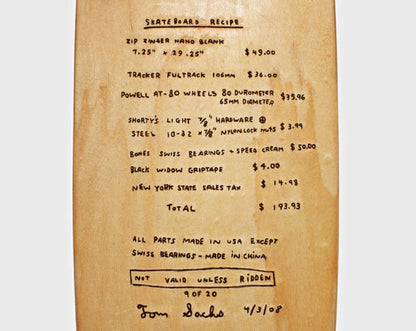 SKATEBOARD RECIPE
ZIP ZINGER NANO BLANK
7.25" x 29.25" $49.00
TRACKER FULTRACK 106MM $36.00
POWELL AT-80 WHEELS 80 DUROMETER $35.96
65MM DIAMETER
SHORTY'S LIGHT 7/8" HARDWARE
STEEL 10-32 x 7/8" NYLON LOCK NUTS $3.99
BONES SWISS BEARINGS + SPEED CREAM $50.00
BLACK WIDOW GRIPTAPE $4.00
NEW YORK STATE SALES TAX $ 14.98
TOTAL $ 193.93
ALL PARTS MADE IN USA EXCEPT
SWISS BEARINGS - MADE IN CHINA
NOT VALID UNLESS RIDDEN
9 OF 20
Tom Sachs 4/3/08